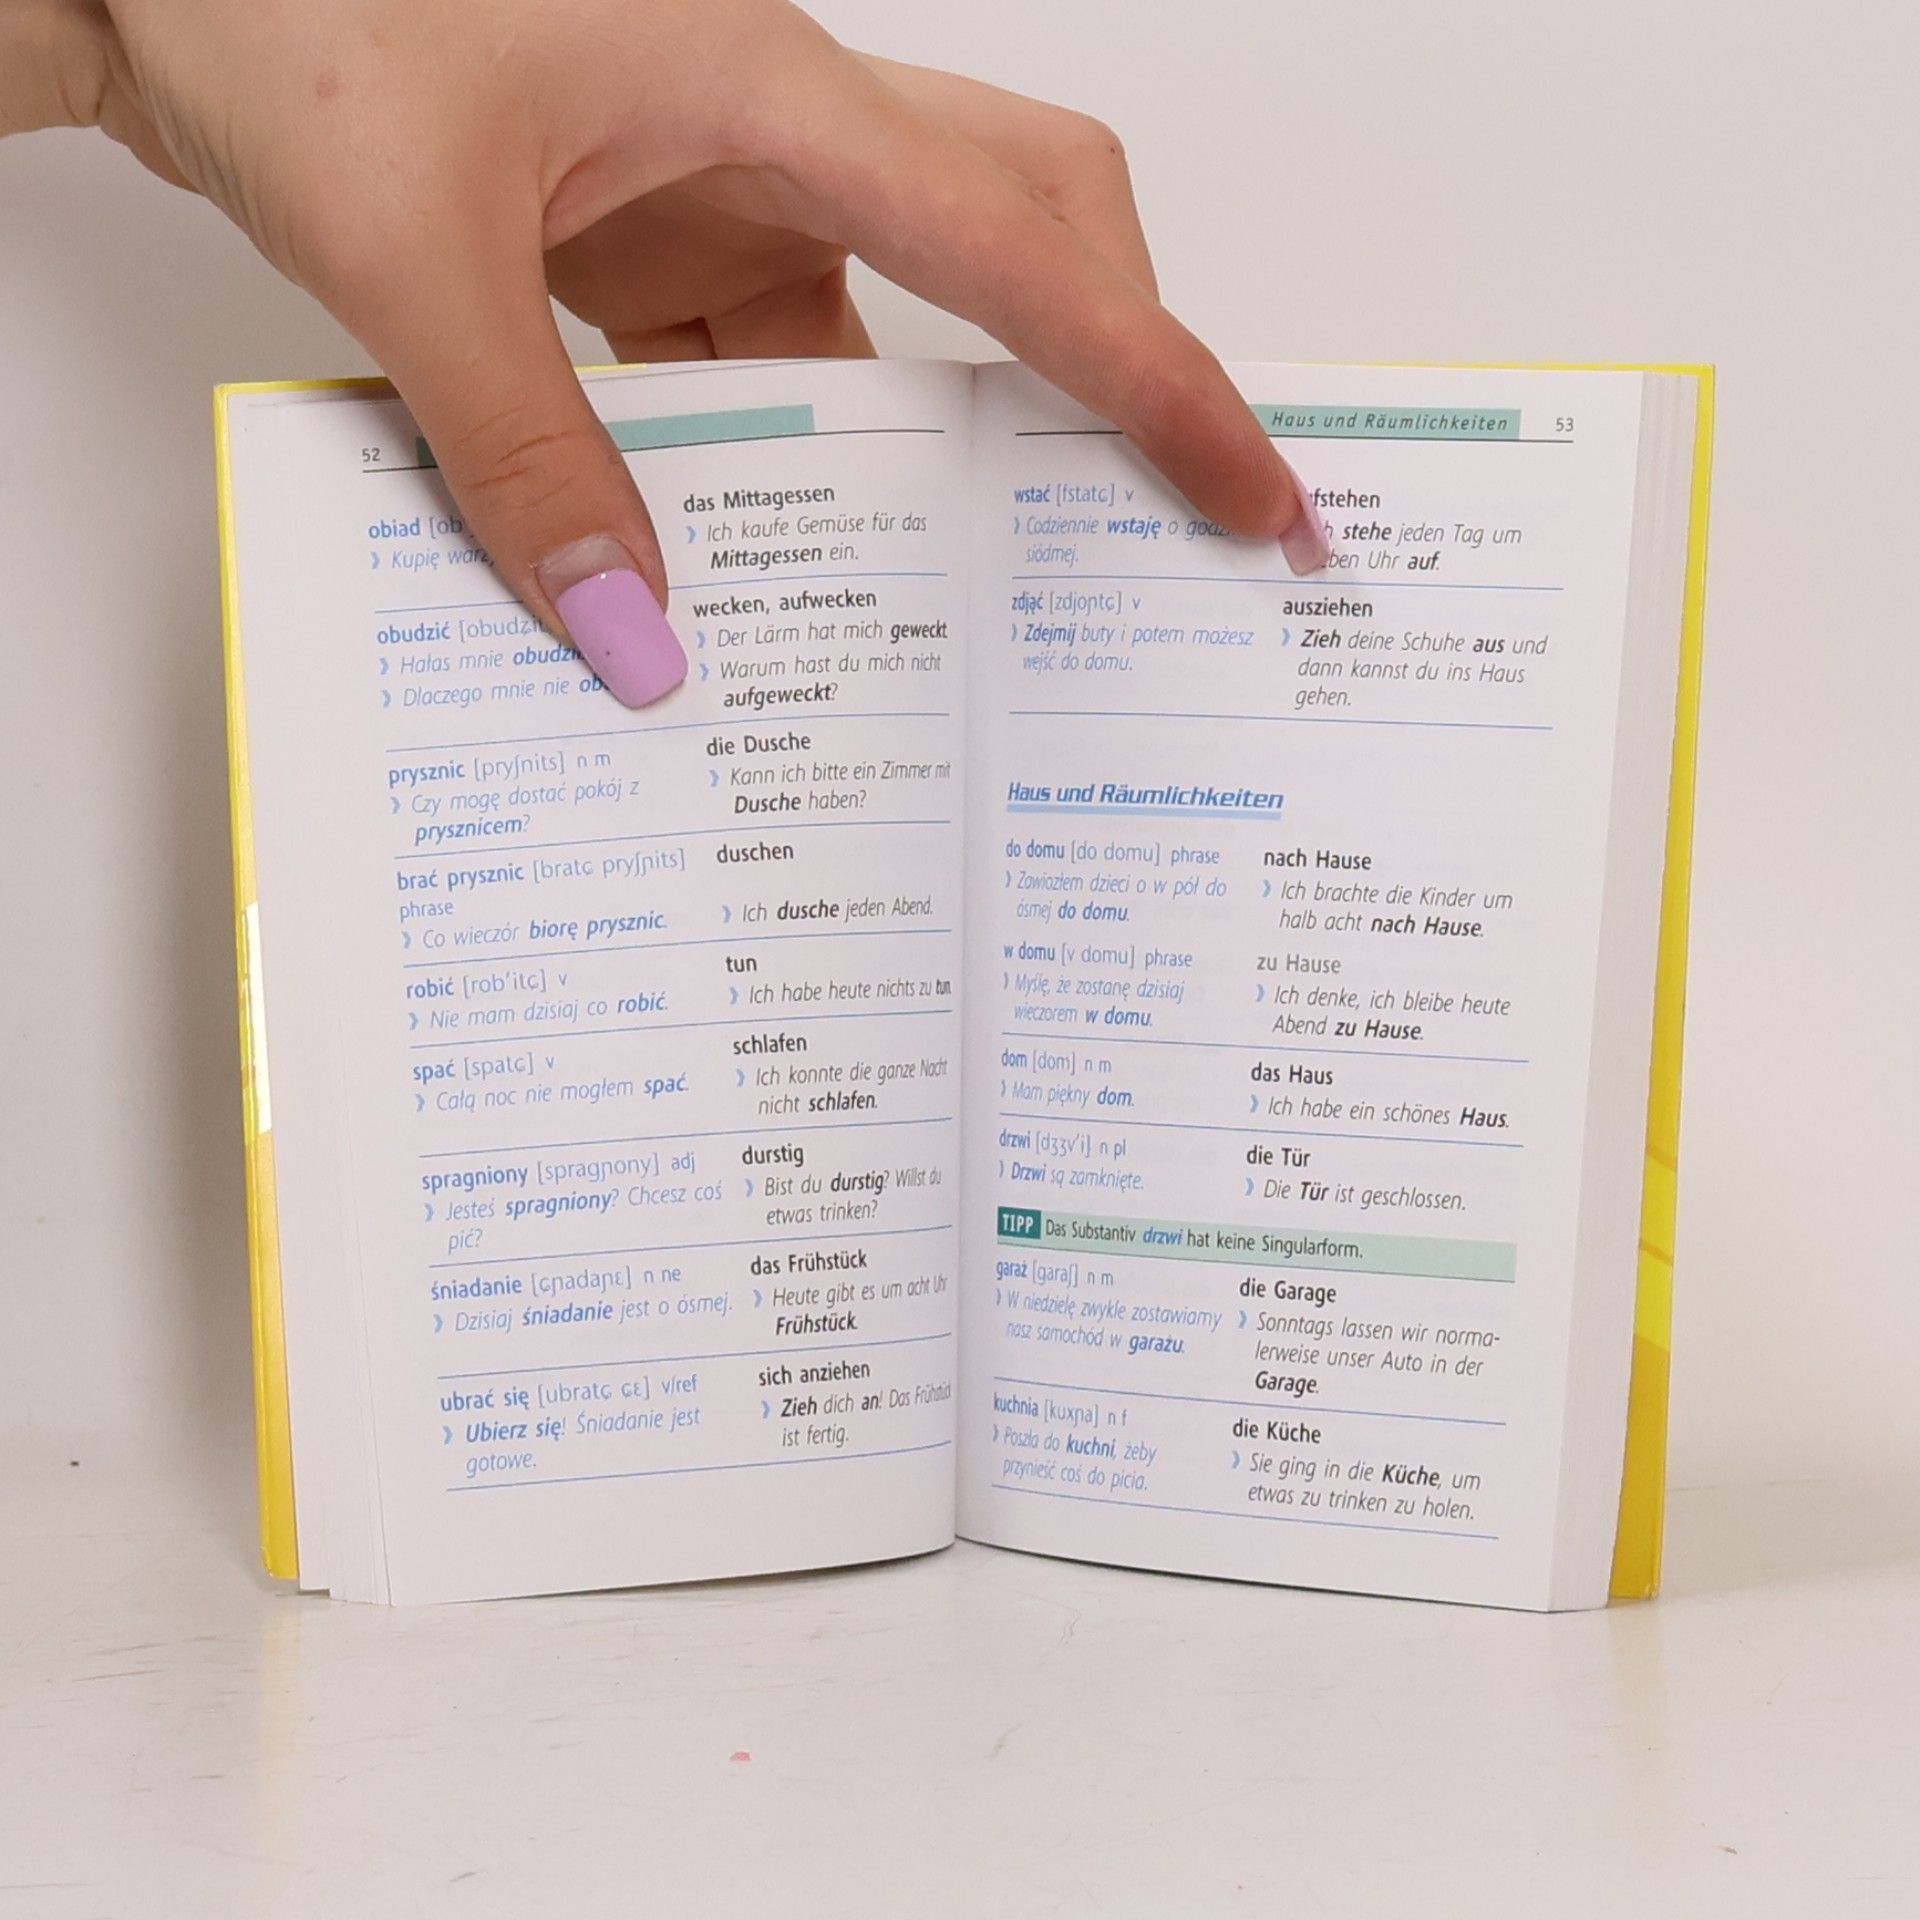 52
obiad
Kupię
das Mittagessen
Ich kaufe Gemüse für das
Mittagessen ein.
obudzić
Hałas mnie
Dlaczego mnie nie
wecken, aufwecken
Der Lärm hat mich geweckt
Warum hast du mich nicht
aufgeweckt?
prysznic [pryʃnits] n m
Czy mogę dostać pokój z
prysznicem?
die Dusche
Kann ich bitte ein Zimmer mit
Dusche haben?
brać prysznic [bratɕ pryʃnits]
phrase
Co wieczór biorę prysznic.
duschen
Ich dusche jeden Abend.
robić [rob'itɕ] v
Nie mam dzisiaj co robić.
tun
Ich habe heute nichts zu tun.
spać [spatɕ] v
Całą noc nie mogłem spać.
schlafen
Ich konnte die ganze Nacht
nicht schlafen.
spragniony [spragɲony] adj
Jesteś spragniony? Chcesz coś
pić?
durstig
Bist du durstig? Willst du
etwas trinken?
śniadanie [ɕɲadaɲɛ] n ne
Dzisiaj śniadanie jest o ósmej.
das Frühstück
Heute gibt es um acht Uhr
Frühstück.
ubrać się [ubratɕ ɕɛ] v/ref
Ubierz się! Śniadanie jest
gotowe.
sich anziehen
Zieh dich an! Das Frühstück
ist fertig.
Haus und Räumlichkeiten 53
wstać [fstatɕ] v
Codziennie wstaję o
siódmej.
stehe jeden Tag um
Uhr auf.
zdjąć [zdjoɲtɕ] v
Zdejmij buty i potem możesz
wejść do domu.
ausziehen
Zieh deine Schuhe aus und
dann kannst du ins Haus
gehen.
Haus und Räumlichkeiten
do domu [do domu] phrase
Zawiozłem dzieci o w pół do
ósmej do domu.
nach Hause
Ich brachte die Kinder um
halb acht nach Hause.
w domu [v domu] phrase
Myślę, że zostanę dzisiaj
wieczorem w domu.
zu Hause
Ich denke, ich bleibe heute
Abend zu Hause.
dom [dom] n m
Mam piękny dom.
das Haus
Ich habe ein schönes Haus.
drzwi [dʒʒv'i] n pl
Drzwi są zamknięte.
die Tür
Die Tür ist geschlossen.
TIPP Das Substantiv drzwi hat keine Singularform.
garaż [garaʃ] n m
W niedzielę zwykle zostawiamy
nasz samochód w garażu.
die Garage
Sonntags lassen wir norma-
lerweise unser Auto in der
Garage.
kuchnia [kuxɲa] n f
Poszła do kuchni, żeby
przynieść coś do picia.
die Küche
Sie ging in die Küche, um
etwas zu trinken zu holen.